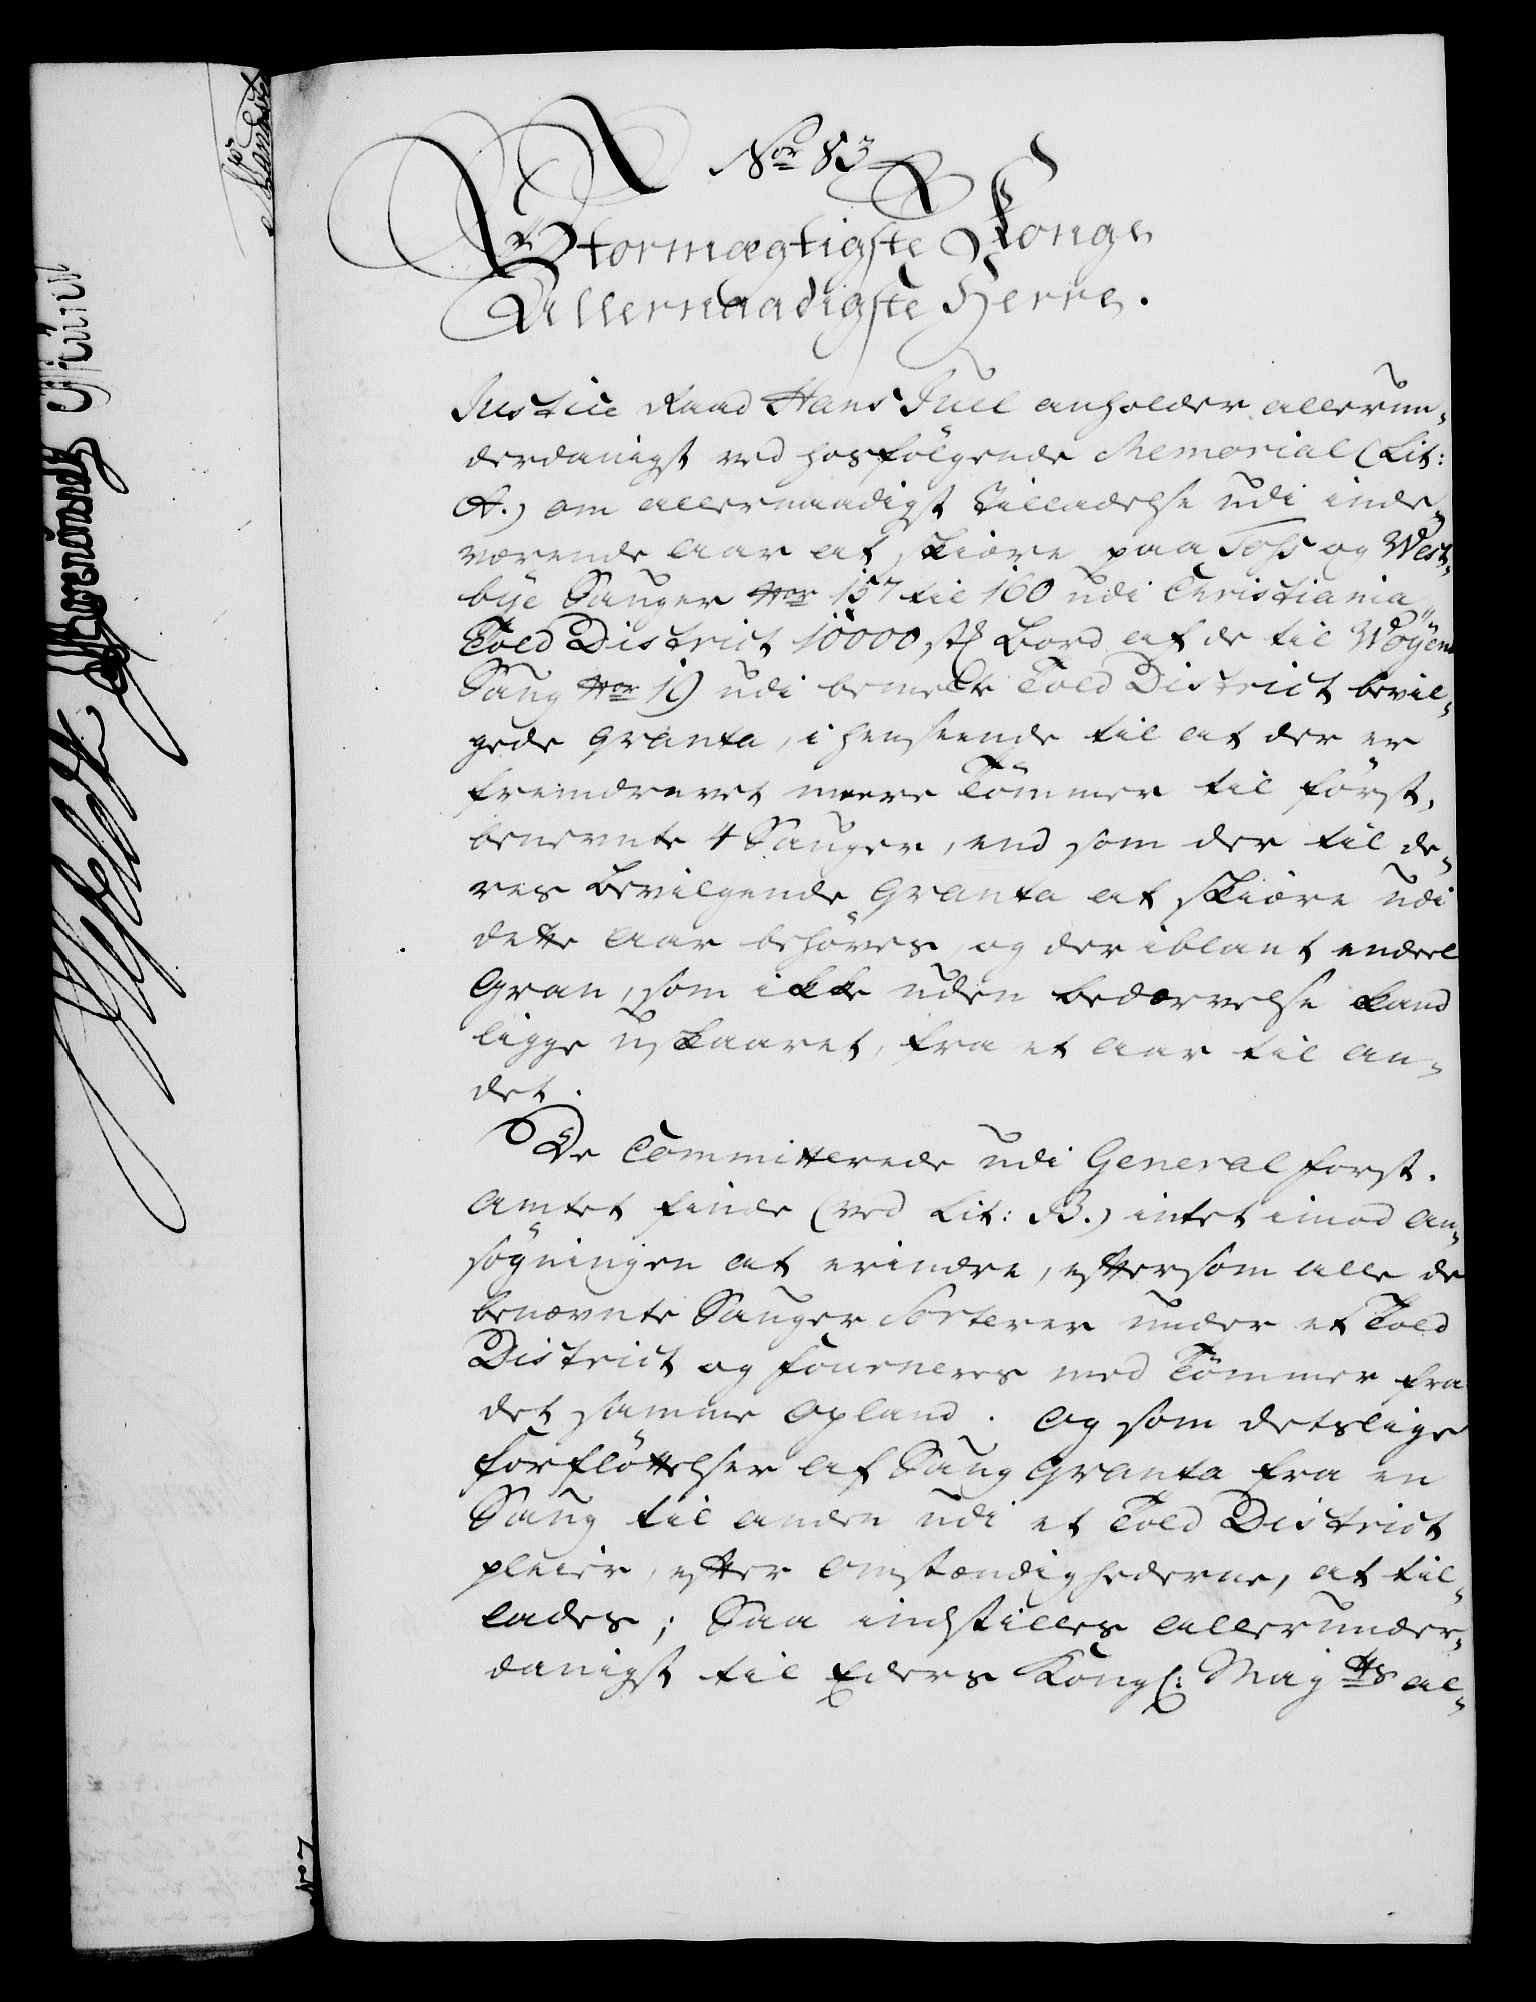 No 83
Stormægtigste Konge
Allernaadigste Herre.
Justice Raad Hans Juel anholder allerun-
derdanigst ved hosfølgende Memorial (Lit:
A.) om allernaadigst Tilladelse udi inde-
værende Aar at skiære paa Toss og West-
bye Sauger No 157 til 160 udi Christiania
Told District 10000 st Bord af de til Wøyen
Saug No 19 udi bemelte Told District bevil-
gede Qvanta, i henseende til at der er
fremdrevet meere Tømmer til først-
benevnte 4 Sauger, end som der til de-
res Bevilgende Qvanta at skiære udi
dette Aar behøves, og der iblant endeel
Gran, som ikke uden bedærvelse kand
ligge uskaaret, fra et Aar til an-
det.
De Committerede udi General Forst-
Amtet finde (ved Lit: B.) intet imod An-
søgningen at erindre, eftersom alle de
benævnte Sauger Sorterer under et Told
District og fourneres med Tømmer fra
det samme Opland. Og som detslige
forfløttelser af Saug Qvanta fra en
Saug til anden udi et Told District
pleier, efter Omstændighederne, at til-
lades; Saa indstilles allerunder-
danigst til Eders Kongl: Mayts al-